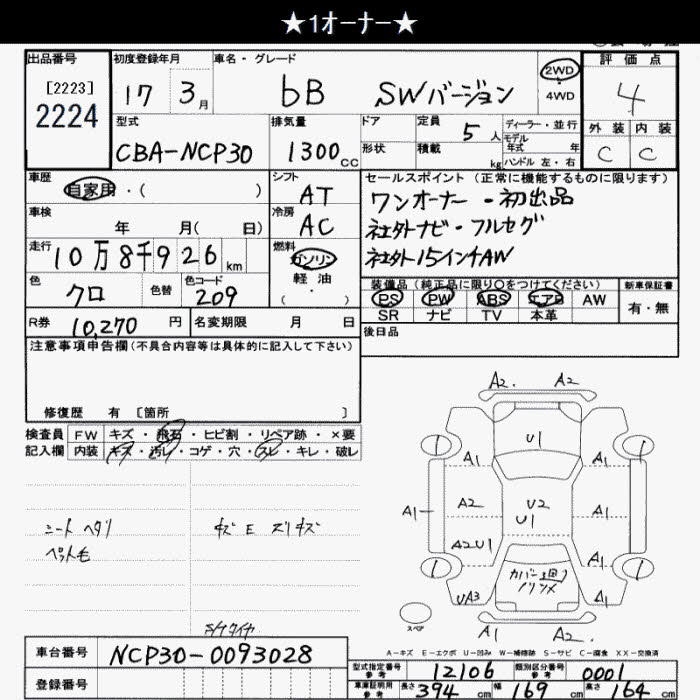 ★1オーナー★
出品番号
[2223]
2224
初度登録年月
17 3月
車名・グレード
bB SWバージョン
2WD
4WD
評価点
4
外装 内装
C C
型式
CBA-NCP30
排気量
1300cc
ドア
形状
定員 5人
積載 kg
ディーラー・並行
モデル
年式 年
ハンドル 左・右
車歴
自家用・( )
シフト
AT
セールスポイント (正常に機能するものに限ります)
ワンオーナー・初出品
社外ナビ・フルセグ
社外15インチAW
車検
年 月( 日)
冷房
AC
走行
10万8千926km
燃料
ガソリン
軽油
( ・ )
色
クロ
色替
色コード
209
装備品 (純正品に限り〇をつけてください)
PS PW ABS エアB AW
SR ナビ TV 本革
新車保証書
有・無
R券 10,270円
名変期限 月 日
後日品
注意事項申告欄(不具合内容等は具体的に記入して下さい)
修復歴 有 [箇所 ]
検査員
記入欄
FW キズ・飛石・ヒビ割・リペア跡・×要
内装 キズ・汚レ・コゲ・穴・スレ・キレ・破レ
シートヘタリ
ペット毛
キズ E スリキズ
A2. A2
U1
1 A1 A1 1
A1 A2 U2 A1 A1
U1
A2U1 A1
1 1
UA3 A2
A1 A2.
スペア
A-キズ E-エクボ U-凹み W-補修跡 S-サビ C-腐食 XX-交換済
車台番号 NCP30-0093028
登録番号
型式指定番号
参考
12106
類別区分番号
参考
0001
車庫証明用
参考
長さ 394cm 幅 169cm 高さ 164cm